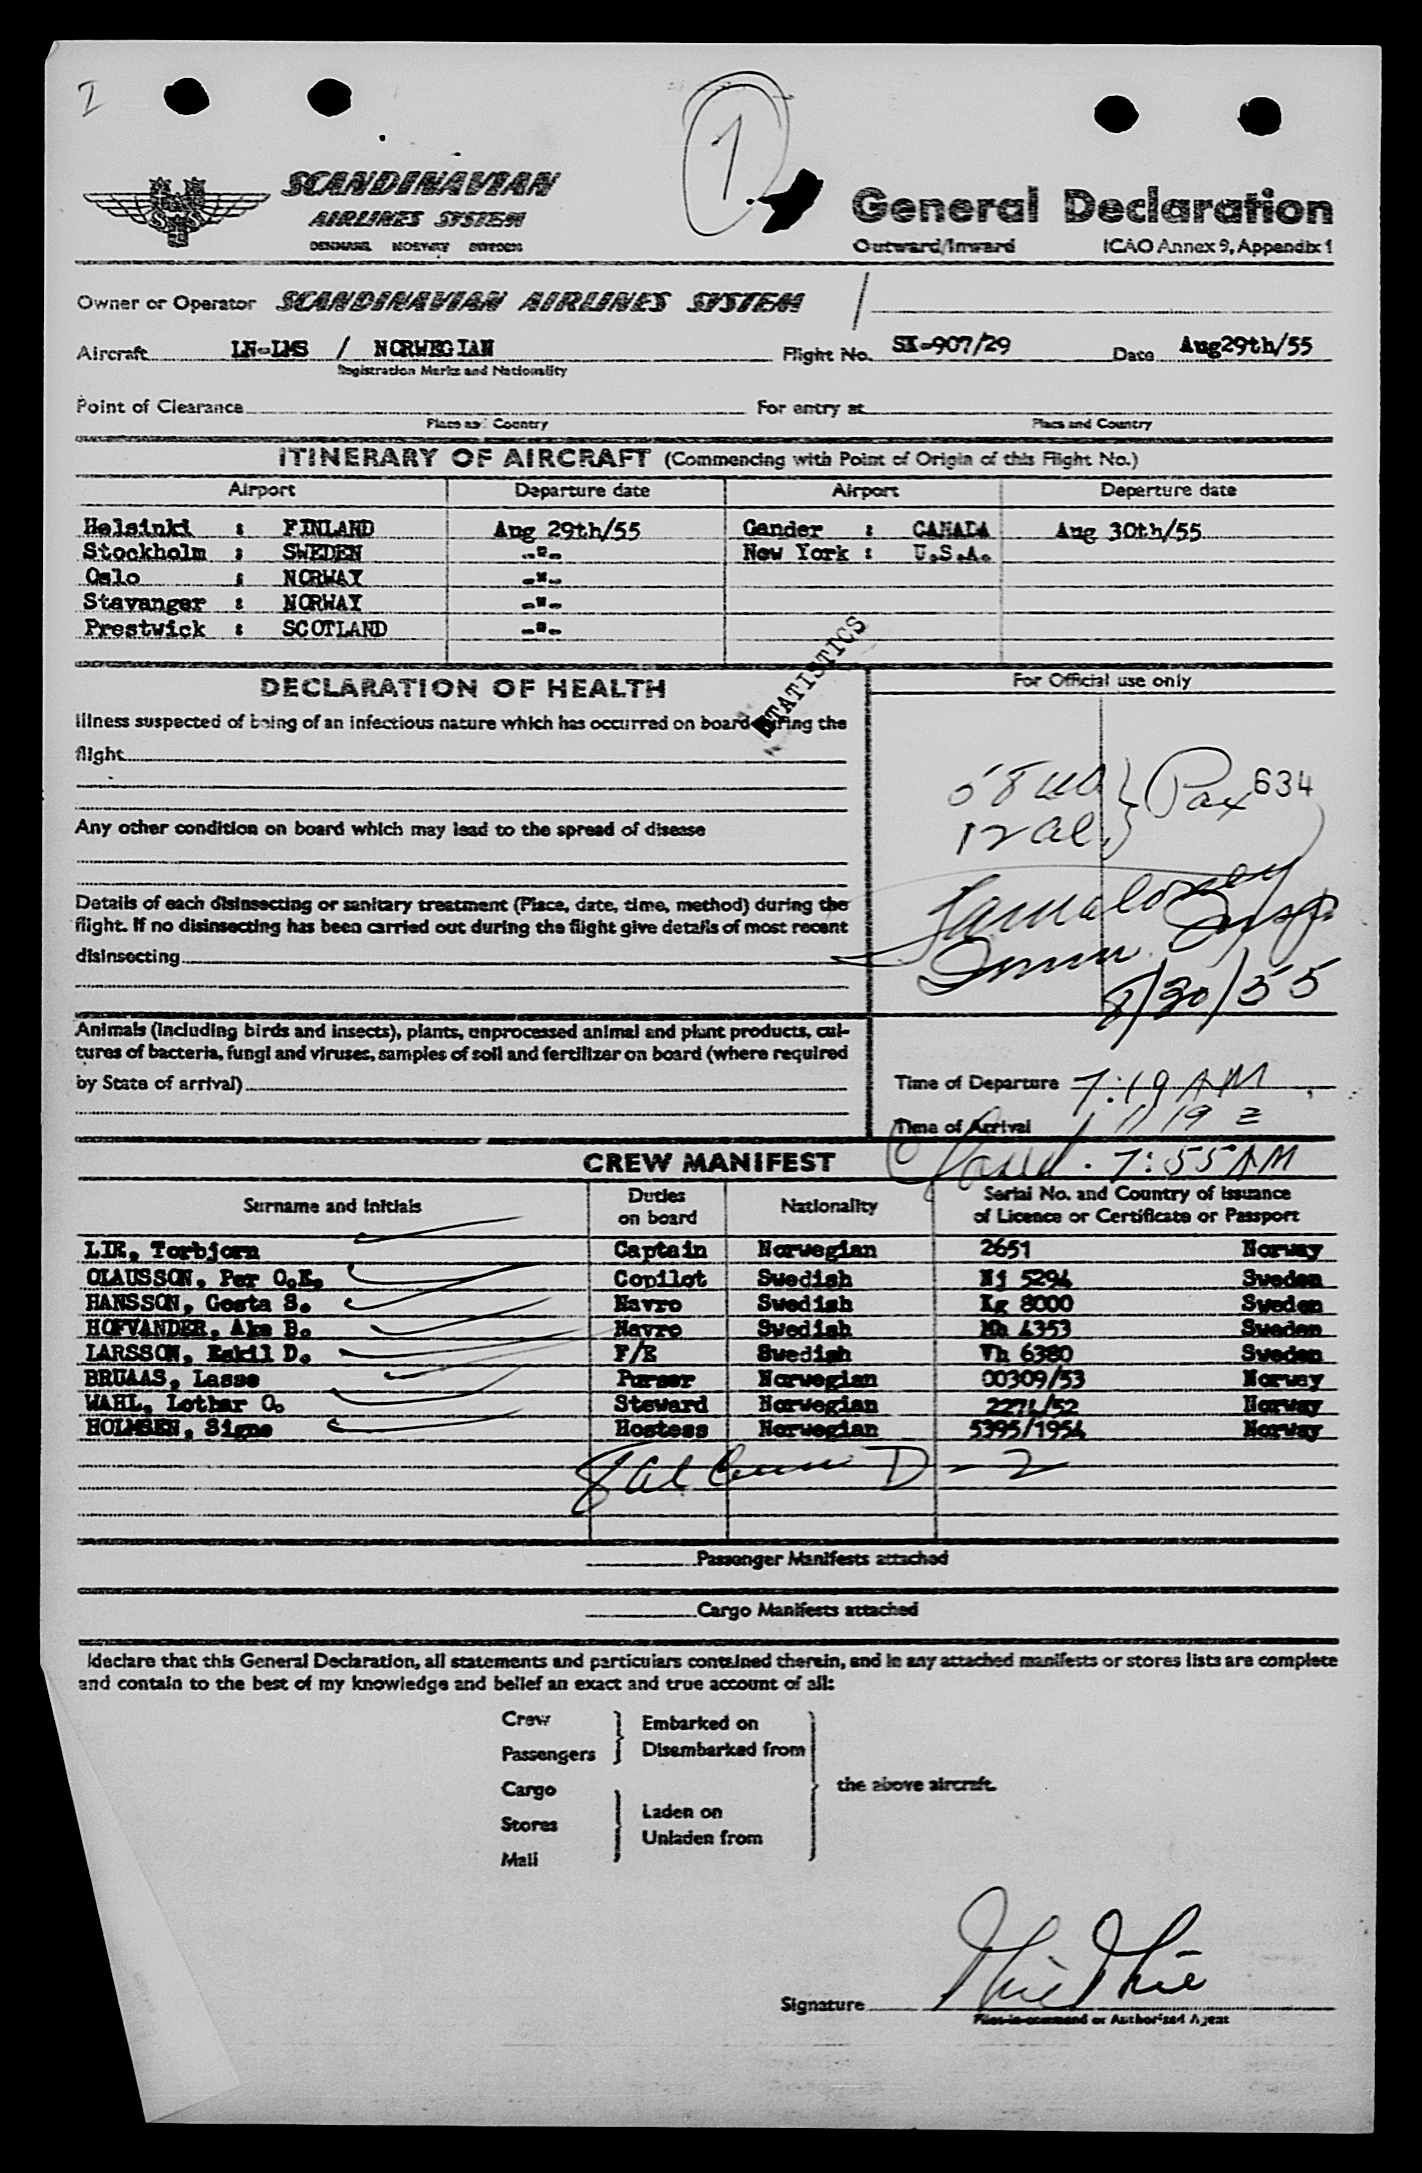 I
1.
SCANDINAVIAN
AIRLINES SYSTEM
DENMARK NORWAY SWEDEN
General Declaration
Outward/Inward ICAO Annex 9, Appendix 1
Owner or Operator SCANDINAVIAN AIRLINES SYSTEM /
Aircraft LN-LMS / NORWEGIAN Flight No. SK-907/29 Date Aug29th/55
Registration Marks and Nationality
Point of Clearance For entry at
Place and Country Place and Country
ITINERARY OF AIRCRAFT (Commencing with Point of Origin of this Flight No.)
Airport Departure date Airport Departure date
Helsinki : FINLAND Aug 29th/55 Gander : CANADA Aug 30th/55
Stockholm : SWEDEN -"- New York : U.S.A.
Oslo : NORWAY -"-
Stavanger : NORWAY -"-
Prestwick : SCOTLAND -"-
STATISTICS
DECLARATION OF HEALTH
For Official use only
Illness suspected of being of an infectious nature which has occurred on board during the
flight
58 } Pax 634
12 al.
Any other condition on board which may lead to the spread of disease
Details of each disinsecting or sanitary treatment (Place, date, time, method) during the
flight. If no disinsecting has been carried out during the flight give details of most recent
disinsecting
8/30/55
Animals (including birds and insects), plants, unprocessed animal and plant products, cul-
tures of bacteria, fungi and viruses, samples of soil and fertilizer on board (where required
by State of arrival)
Time of Departure 7:19 AM
Time of Arrival
Closed. 7:55 AM
CREW MANIFEST
Surname and Initials Duties on board Nationality Serial No. and Country of issuance of Licence or Certificate or Passport
LIR, Torbjorn Captain Norwegian 2651 Norway
OLAUSSON, Per O.E. Copilot Swedish Nj 5294 Sweden
HANSSON, Gosta S. Navro Swedish Kg 8000 Sweden
HOFVANDER, Ake B. Navro Swedish Mh 4353 Sweden
LARSSON, Eskil D. F/E Swedish Vh 6380 Sweden
BRUAAS, Lasse Purser Norwegian 00309/53 Norway
WAHL, Lothar O. Steward Norwegian 2274/52 Norway
HOLMSEN, Signe Hostess Norwegian 5395/1954 Norway
8 al Crew D-2
Passenger Manifests attached
Cargo Manifests attached
I declare that this General Declaration, all statements and particulars contained therein, and in any attached manifests or stores lists are complete
and contain to the best of my knowledge and belief an exact and true account of all:
Crew } Embarked on
Passengers } Disembarked from
Cargo the above aircraft.
Stores } Laden on
Mail } Unladen from
Signature
Pilot-in-command or Authorised Agent